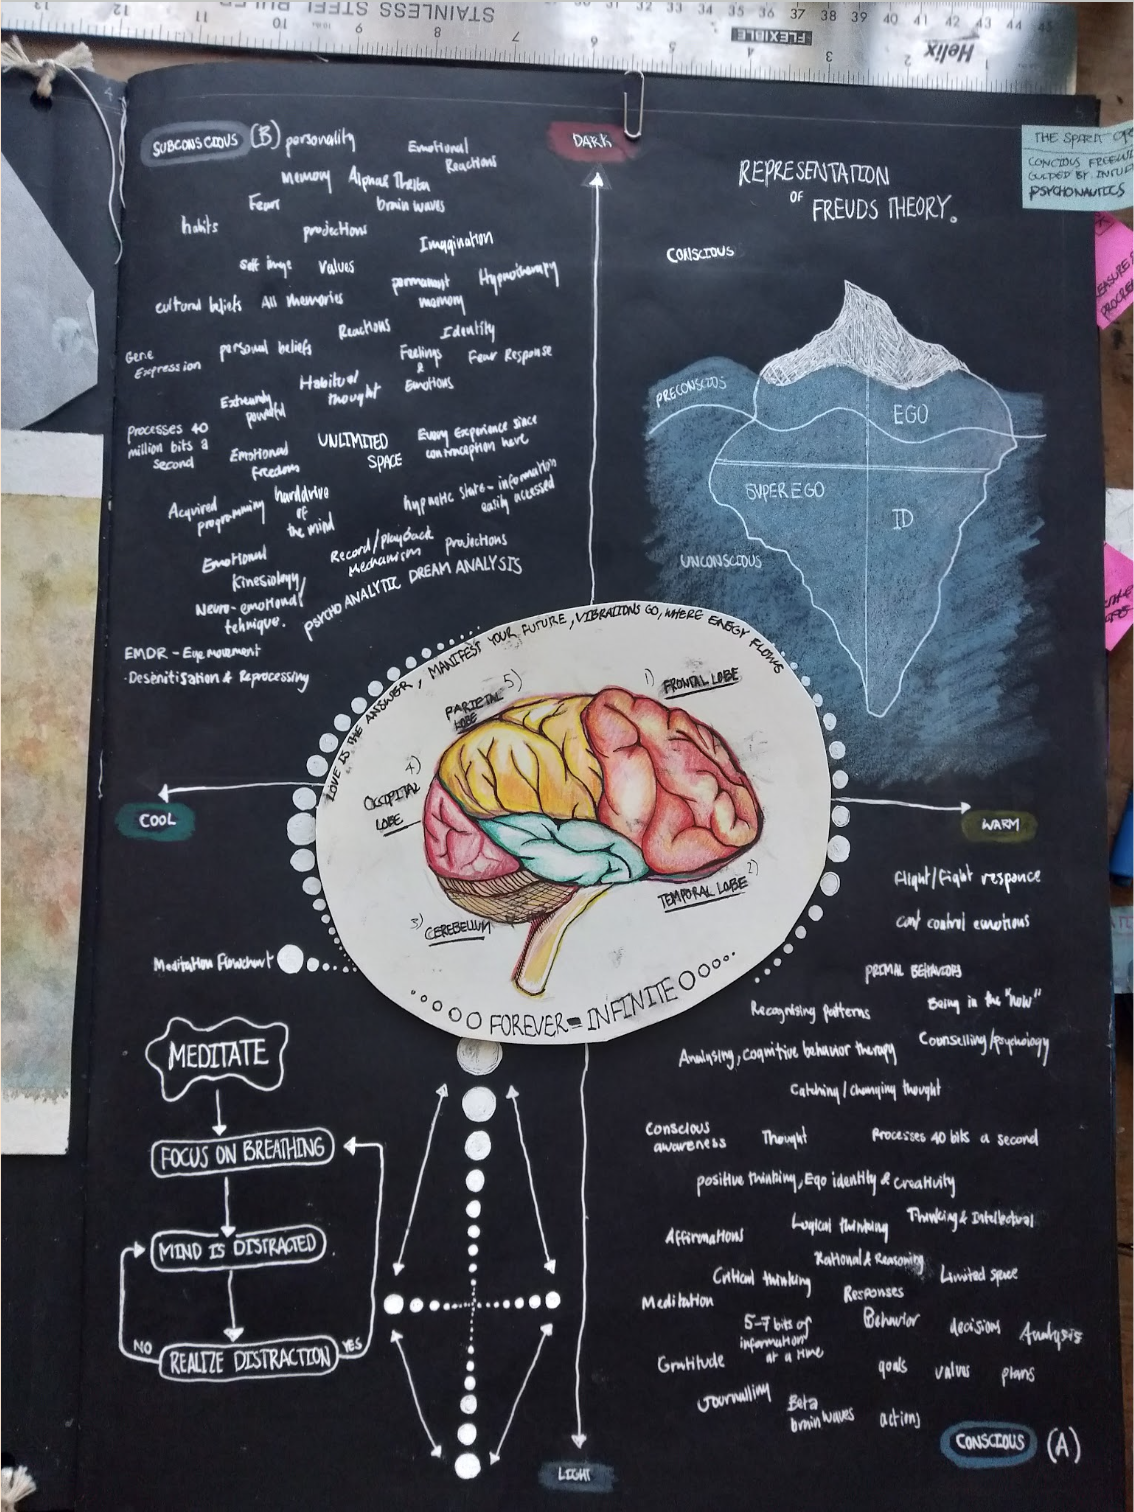 STAINLESS STEEL
FLEXIBLE
Helix
SUBCONSCIOUS (B)
personality
Emotional
Reactions
Memory
Alphas Theta
brain waves
Fears
habits
projections
Imagination
Self imge
values
permanant
memory
Hypnotherapy
cultural beliefs
All memories
Reactions
Identity
Gene
Expression
personal beliefs
Feelings
&
Emotions
Fear Response
Habitual
thought
Extremely
powerful
Processes 40
million bits a
second
Emotional
Freedom
UNLIMITED
SPACE
Every Experience since
Acquired
programming
harddrive
of
the mind
hypnotic state - information
easily accessed
Emotional
Kinesiology/
Neuro-emotional
tehnique.
Record/playback
Mechanism
projections
PSYCHO ANALYTIC DREAM ANALYSIS
EMDR - Eye movement
Desenitisation & Reprocessing
DARK
REPRESENTATION
OF
FREUDS THEORY.
CONSCIOUS
PRECONSCIOS
EGO
SUPER EGO
ID
UNCONSCIOUS
THE SPIRIT OF
CONCIOUS FREEWI
GUIDED BY INTU
PSYCHONAUTICS
LOVE IS THE ANSWER, MANIFEST YOUR FUTURE, VIBRATIONS GO, WHERE ENERGY FLOWS
1) FRONTAL LOBE
5) PARIETAL
LOBE
4)
OCCIPITAL
LOBE
2)
TEMPORAL LOBE
3) CEREBELLUM
FOREVER = INFINITE
COOL
WARM
Meditation Flowchart
MEDITATE
FOCUS ON BREATHING
MIND IS DISTRACTED
NO
REALIZE DISTRACTION
YES
LIGHT
flight/fight responce
cant control emotions
PRIMAL BEHAVIORS
Being in the "now"
Recognising patterns
Counselling/psychology
Analysing, cognitive behavior therapy
Catching/changing thought
Conscious
awareness
Thought
Processes 40 bits a second
positive thinking, Ego identity & creativity
Affirmations
Logical thinking
Thinking & Intellectual
Rational & Reasoning
Critical thinking
Limited space
Meditation
Responses
5-7 bits of
information
at a time
Behavior
decisions
Analysis
Gratitude
goals
values
plans
Journalling
Beta
brain waves
actions
CONSCIOUS (A)